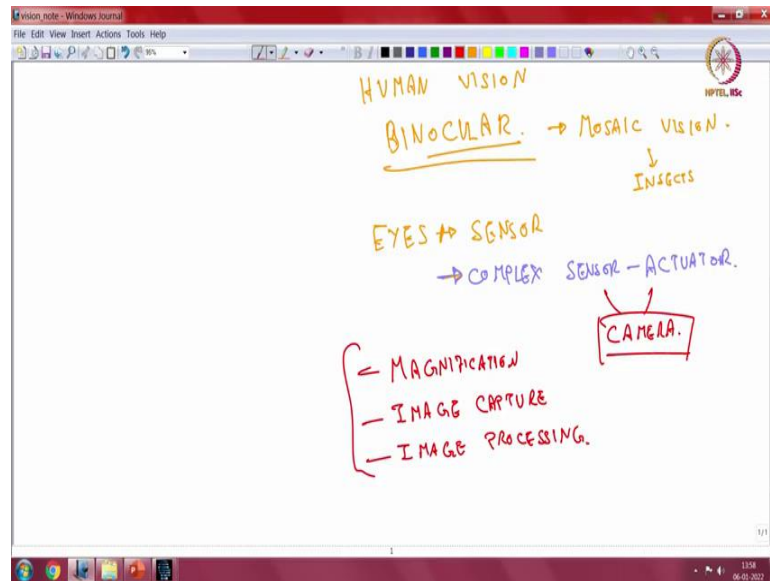 vision_note - Windows Journal
File Edit View Insert Actions Tools Help
96%
B I
NPTEL, IISc
HUMAN VISION
BINOCULAR. → MOSAIC VISION.
↓
INSECTS
EYES → SENSOR
→ COMPLEX SENSOR - ACTUATOR.
CAMERA.
- MAGNIFICATION
- IMAGE CAPTURE
- IMAGE PROCESSING.
1/1
1
13:58
06-01-2022